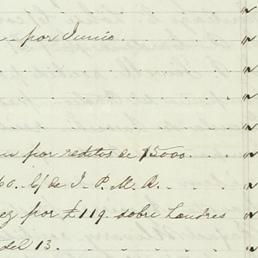 por Junio
por reditos de 15000
60. C/ de J. P. M. A.
ez por £119. sobre Londres
del 13.